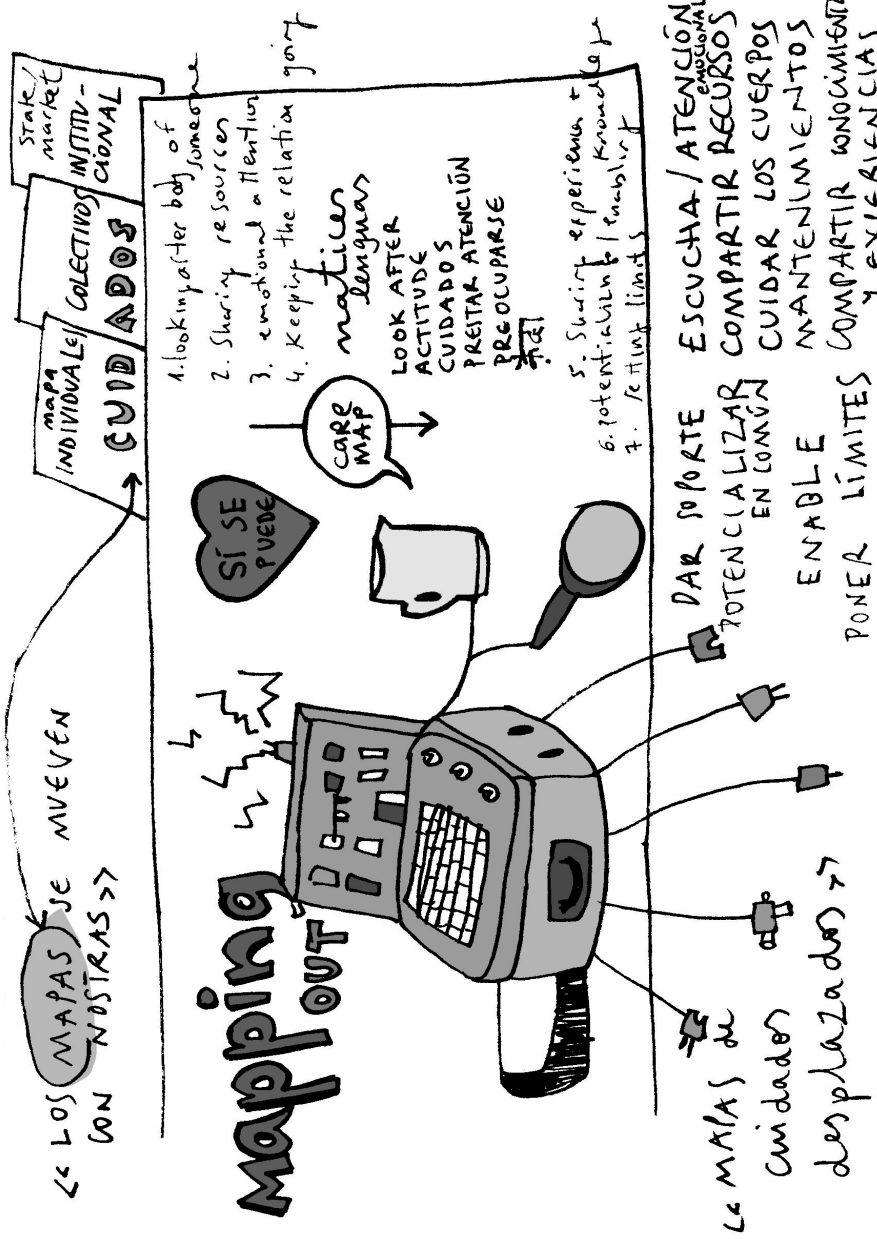 << LOS MAPAS SE MUEVEN
CON NOSTRAS >>
mapa
INDIVIDUALE
COLECTIVOS
State/
market
INSTITU-
CIONAL
CUIDADOS
Mapping
OUT
SÍ SE
PUEDE
CARE
MAP
1. looking after body of
someone
2. Sharing resources
3. emotional attention
4. Keeping the relation going
matices
lenguas
LOOK AFTER
ACTITUDE
CUIDADOS
PRESTAR ATENCIÓN
PREOCUPARSE
5. Sharing experience +
knowledge
6. potentializing / enabling
7. setting limits
<< MAPAS de
cuidados
desplazados >>
DAR SOPORTE
POTENCIALIZAR
EN COMÚN
ENABLE
PONER LÍMITES
ESCUCHA / ATENCIÓN
EMOCIONAL
COMPARTIR RECURSOS
CUIDAR LOS CUERPOS
MANTENIMIENTOS
COMPARTIR CONOCIMIENT
Y EXPERIENCIAS